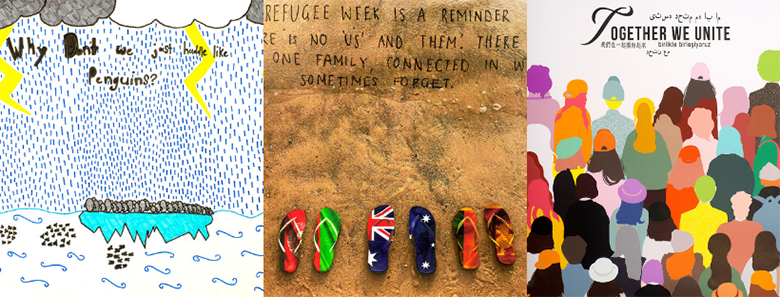 Why Dont we just huddle like
Penguins?
REFUGEE WEEK IS A REMINDER
IS NO 'US' AND THEM. THERE
ONE FAMILY, CONNECTED IN W
SOMETIMES FORGET.
TOGETHER WE UNITE
我們在一起團結起來 birlikte birleşiyoruz